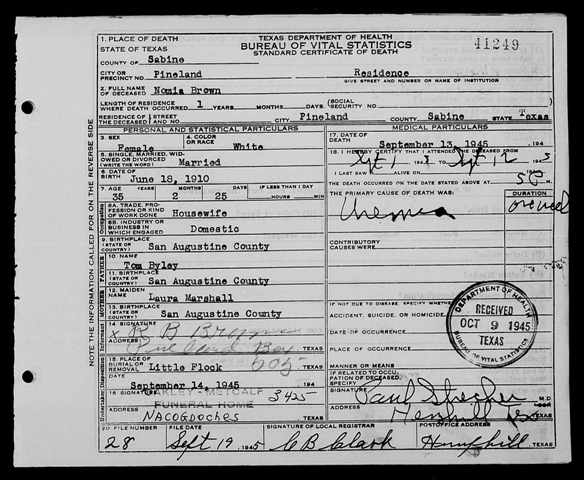 1. PLACE OF DEATH
STATE OF TEXAS
TEXAS DEPARTMENT OF HEALTH
BUREAU OF VITAL STATISTICS
STANDARD CERTIFICATE OF DEATH
41249
COUNTY OF Sabine
CITY OR PRECINCT NO. Pineland Residence
GIVE STREET AND NUMBER OR NAME OF INSTITUTION
2. FULL NAME OF DECEASED Nomia Brown
LENGTH OF RESIDENCE WHERE DEATH OCCURRED 1 YEARS MONTHS DAYS (SOCIAL SECURITY NO.
RESIDENCE OF THE DECEASED STREET AND NO. CITY Pineland COUNTY Sabine STATE Texas
PERSONAL AND STATISTICAL PARTICULARS
MEDICAL PARTICULARS
3. SEX Female
4. COLOR OR RACE White
17. DATE OF DEATH September 13, 1945 194
5. SINGLE, MARRIED, WIDOWED OR DIVORCED (WRITE THE WORD) Married
18. I HEREBY CERTIFY THAT I ATTENDED THE DECEASED FROM
Sept 1 Sept 12 1945
6. DATE OF BIRTH June 18, 1910
I LAST SAW ALIVE ON
THE DEATH OCCURRED ON THE DATE STATED ABOVE AT
7. AGE YEARS MONTHS DAYS IF LESS THAN 1 DAY
35 2 25 HOURS MIN
THE PRIMARY CAUSE OF DEATH WAS: DURATION
Uremia
8A. TRADE, PROFESSION OR KIND OF WORK DONE Housewife
8B. INDUSTRY OR BUSINESS IN WHICH ENGAGED Domestic
9. BIRTHPLACE (STATE OR COUNTRY) San Augustine County
CONTRIBUTORY CAUSES WERE:
10. NAME Tom Ryley
11. BIRTHPLACE (STATE OR COUNTRY) San Augustine County
12. MAIDEN NAME Laura Marshall
13. BIRTHPLACE (STATE OR COUNTRY) San Augustine County
IF NOT DUE TO DISEASE, SPECIFY WHETHER:
ACCIDENT, SUICIDE, OR HOMICIDE
DATE OF OCCURRENCE
PLACE OF OCCURRENCE
MANNER OR MEANS
DEPARTMENT OF HEALTH
RECEIVED
OCT 9 1945
TEXAS
BUREAU OF VITAL STATISTICS
14. SIGNATURE X R B Brown
ADDRESS TEXAS
15. PLACE OF BURIAL OR REMOVAL Little Flock 505 TEXAS
IF RELATED TO OCCUPATION OF DECEASED, SPECIFY
DATE September 14, 1945
16. SIGNATURE OAKLEY-METCALF 3425
FUNERAL HOME
ADDRESS NACOGDOCHES TEXAS
SIGNATURE Paul M.D.
ADDRESS Hemphill TEXAS
20. FILE NUMBER FILE DATE SIGNATURE OF LOCAL REGISTRAR POSTOFFICE ADDRESS
28 Sept 19 1945 C B Clark Hemphill TEXAS
NOTE THE INFORMATION CALLED FOR ON THE REVERSE SIDE